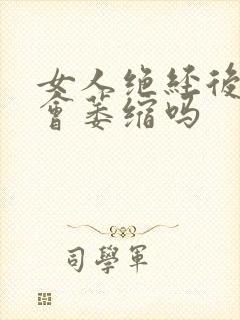 女人绝经後
會萎缩吗
司學軍